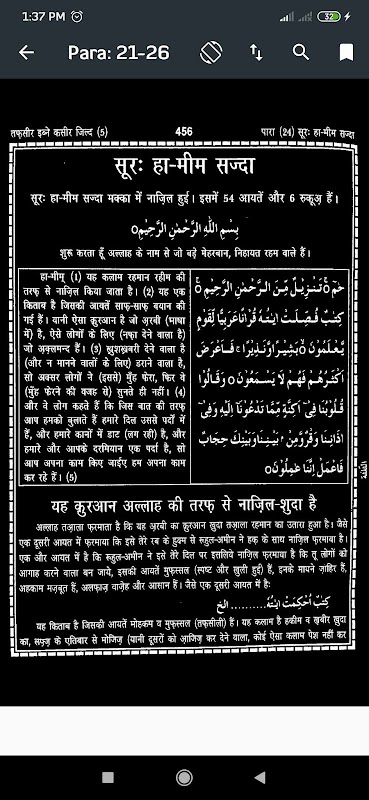 1:37 PM
32
Para: 21-26
तफ़सीर इब्ने कसीर जिल्द (5)
456
पारा (24) सूरः हा-मीम सज्दा
सूरः हा-मीम सज्दा
सूरः हा-मीम सज्दा मक्का में नाज़िल हुई। इसमें 54 आयतें और 6 रुकूअ़ हैं।
بِسْمِ اللهِ الرَّحْمٰنِ الرَّحِيْمِ
शुरू करता हूँ अल्लाह के नाम से जो बड़े मेहरबान, निहायत रहम वाले हैं।
हा-मीम् (1) यह कलाम रहमान रहीम की
तरफ़ से नाज़िल किया जाता है। (2) यह एक
किताब है जिसकी आयतें साफ़-साफ़ बयान की
गई हैं। यानी ऐसा क़ुरआन है जो अ़रबी (भाषा
में) है, ऐसे लोगों के लिए (नफ़ा देने वाला है)
जो अ़क़्लमन्द हैं। (3) ख़ुशख़बरी देने वाला है
(और न मानने वालों के लिए) डराने वाला है,
सो अक्सर लोगों ने (इससे) मुँह फेरा, फिर वे
(मुँह फेरने की वजह से) सुनते ही नहीं। (4)
और वे लोग कहते हैं कि जिस बात की तरफ़
आप हमको बुलाते हैं हमारे दिल उससे पर्दों में
हैं, और हमारे कानों में डाट (लग रही) है, और
हमारे और आपके दरमियान एक पर्दा है, सो
आप अपना काम किए जाईए हम अपना काम
कर रहे हैं। (5)
حٰمٓ ۝ تَنْزِيْلٌ مِّنَ الرَّحْمٰنِ الرَّحِيْمِ ۝
كِتٰبٌ فُصِّلَتْ اٰيٰتُهٗ قُرْاٰنًا عَرَبِيًّا لِّقَوْمٍ
يَّعْلَمُوْنَ ۝ بَشِيْرًا وَّنَذِيْرًا ۚ فَاَعْرَضَ
اَكْثَرُهُمْ فَهُمْ لَا يَسْمَعُوْنَ ۝ وَقَالُوْا
قُلُوْبُنَا فِيْٓ اَكِنَّةٍ مِّمَّا تَدْعُوْنَآ اِلَيْهِ وَفِيْٓ
اٰذَانِنَا وَقْرٌ وَّمِنْۢ بَيْنِنَا وَبَيْنِكَ حِجَابٌ
فَاعْمَلْ اِنَّنَا عٰمِلُوْنَ ۝
यह क़ुरआन अल्लाह की तरफ़ से नाज़िल-शुदा है
अल्लाह तआ़ला फ़रमाता है कि यह अ़रबी का क़ुरआन ख़ुदा तआ़ला रहमान का उतारा हुआ है। जैसे
एक दूसरी आयत में फ़रमाया कि इसे तेरे रब के हुक्म से रूहुल-अमीन ने हक़ के साथ नाज़िल फ़रमाया है।
एक और आयत में है कि रूहुल-अमीन ने इसे तेरे दिल पर इसलिये नाज़िल फ़रमाया है कि तू लोगों को
आगाह करने वाला बन जाये, इसकी आयतें मुफ़स्सल (स्पष्ट और खुली हुई) हैं, इनके मायने ज़ाहिर हैं,
अहकाम मज़बूत हैं, अलफ़ाज़ वाज़ेह और आसान हैं। जैसे एक दूसरी आयत में हैः
كِتٰبٌ اُحْكِمَتْ اٰيٰتُهٗ.......... الخ
यह किताब है जिसकी आयतें मोहकम व मुफ़स्सल (तफ़सीली) हैं। यह कलाम है हकीम व ख़बीर ख़ुदा
का, लफ़्ज़ के एतिबार से मोजिज़ (यानी दूसरों को आ़जिज़ कर देने वाला, कोई ऐसा कलाम पेश नहीं कर